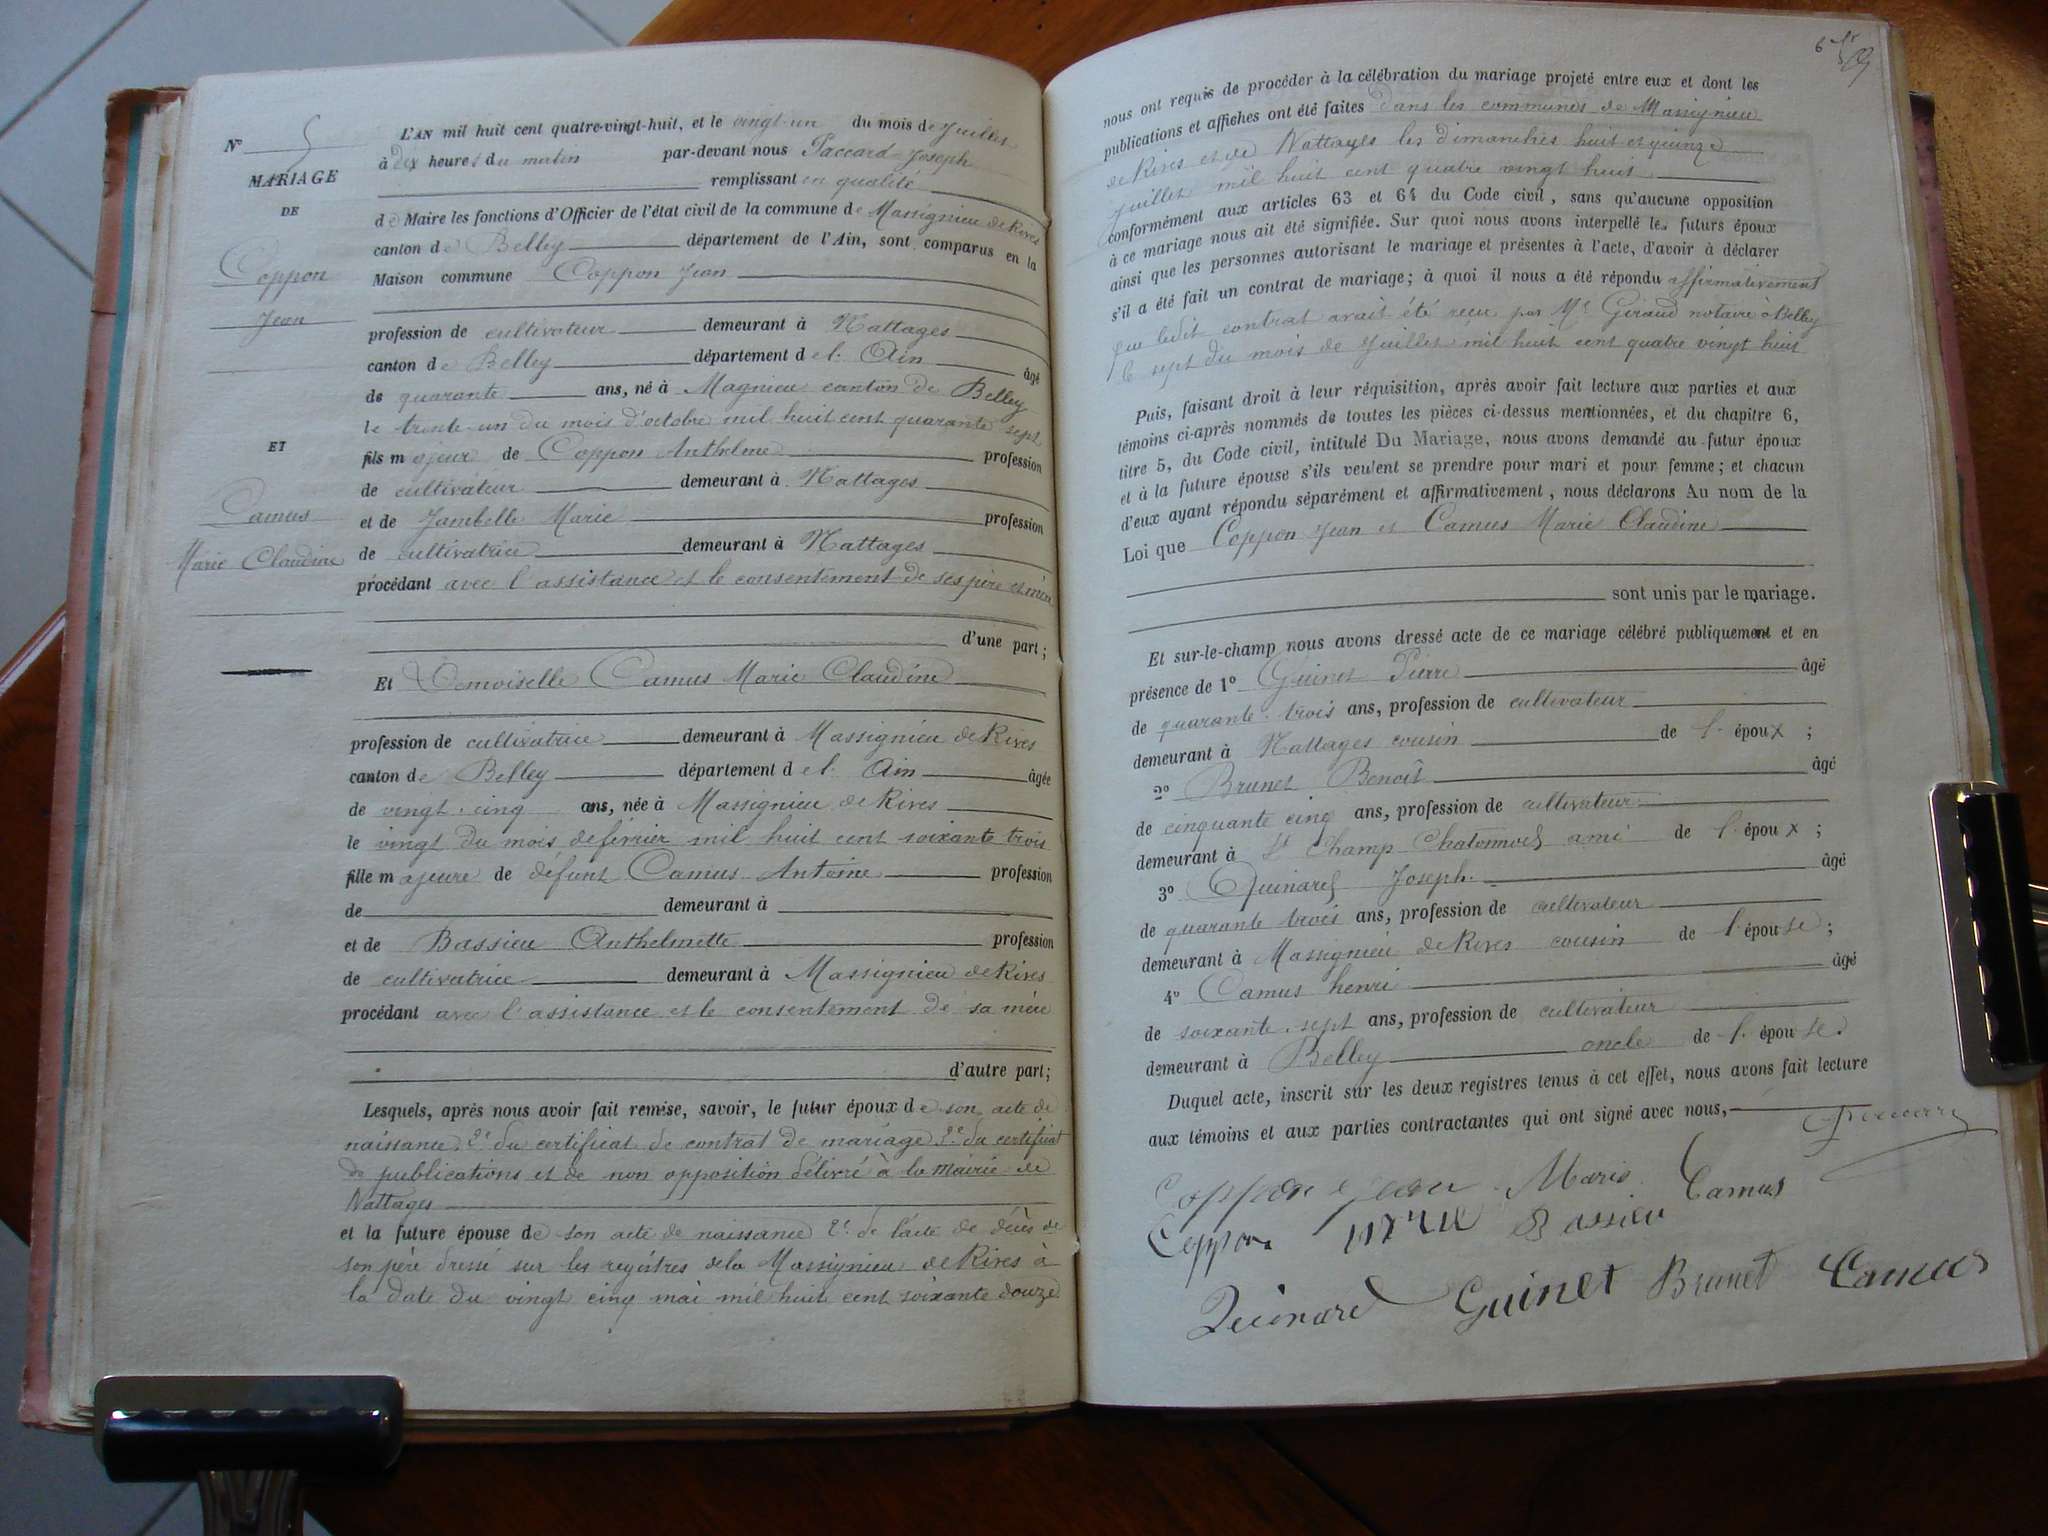 N° 5
MARIAGE
DE
Coppon
Jean
ET
Camus
Marie Claudine
L'AN mil huit cent quatre-vingt-huit, et le vingt-un du mois de Juillet
à dix heures du matin par-devant nous Paccard Joseph
remplissant en qualité
de Maire les fonctions d'Officier de l'état civil de la commune de Massignieu de Rives
canton de Belley département de l'Ain, sont comparus en la
Maison commune Coppon Jean
profession de cultivateur demeurant à Nattages
canton de Belley département de l'Ain âgé
de quarante ans, né à Magnieu canton de Belley
le trente-un du mois d'octobre mil huit cent quarante sept
fils majeur de Coppon Anthelme profession
de cultivateur demeurant à Nattages
et de Jambelle Marie profession
de cultivatrice demeurant à Nattages
procédant avec l'assistance et le consentement de ses père et mère
d'une part;
Et Demoiselle Camus Marie Claudine
profession de cultivatrice demeurant à Massignieu de Rives
canton de Belley département de l'Ain âgée
de vingt-cinq ans, née à Massignieu de Rives
le vingt du mois de février mil huit cent soixante trois
fille majeure de défunt Camus Antoine profession
de demeurant à
et de Bassieu Anthelmette profession
de cultivatrice demeurant à Massignieu de Rives
procédant avec l'assistance et le consentement de sa mère
d'autre part;
Lesquels, après nous avoir fait remise, savoir, le futur époux de son acte de
naissance, 2e du certificat de contrat de mariage 3e du certificat
de publications et de non opposition délivré à la mairie de
Nattages
et la future épouse de son acte de naissance 2e de l'acte de décès de
son père dressé sur les registres de la Massignieu de Rives à
la date du vingt cinq mai mil huit cent soixante douze
nous ont requis de procéder à la célébration du mariage projeté entre eux et dont les
publications et affiches ont été faites dans les communes de Massignieu
de Rives et de Nattages les dimanches huit et quinze
juillet mil huit cent quatre vingt huit
conformément aux articles 63 et 64 du Code civil, sans qu'aucune opposition
à ce mariage nous ait été signifiée. Sur quoi nous avons interpellé les futurs époux
ainsi que les personnes autorisant le mariage et présentes à l'acte, d'avoir à déclarer
s'il a été fait un contrat de mariage; à quoi il nous a été répondu affirmativement
que ledit contrat avait été reçu par Me Giraud notaire à Belley
le sept du mois de Juillet mil huit cent quatre vingt huit
Puis, faisant droit à leur réquisition, après avoir fait lecture aux parties et aux
témoins ci-après nommés de toutes les pièces ci-dessus mentionnées, et du chapitre 6,
titre 5, du Code civil, intitulé Du Mariage, nous avons demandé au futur époux
et à la future épouse s'ils veulent se prendre pour mari et pour femme; et chacun
d'eux ayant répondu séparément et affirmativement, nous déclarons Au nom de la
Loi que Coppon Jean et Camus Marie Claudine
sont unis par le mariage.
Et sur-le-champ nous avons dressé acte de ce mariage célébré publiquement et en
présence de 1° Guinet Pierre âgé
de quarante-trois ans, profession de cultivateur
demeurant à Nattages cousin de l'époux;
2° Brunet Benoît âgé
de cinquante cinq ans, profession de cultivateur
demeurant à St Champ Chatonnod ami de l'époux;
3° Quinard Joseph âgé
de quarante trois ans, profession de cultivateur
demeurant à Massignieu de Rives cousin de l'épouse;
4° Camus henri âgé
de soixante-sept ans, profession de cultivateur
demeurant à Belley oncle de l'épouse.
Duquel acte, inscrit sur les deux registres tenus à cet effet, nous avons fait lecture
aux témoins et aux parties contractantes qui ont signé avec nous,
Coppon jean Marie Camus
Coppon Bassieu
Quinard Guinet Brunet Camus